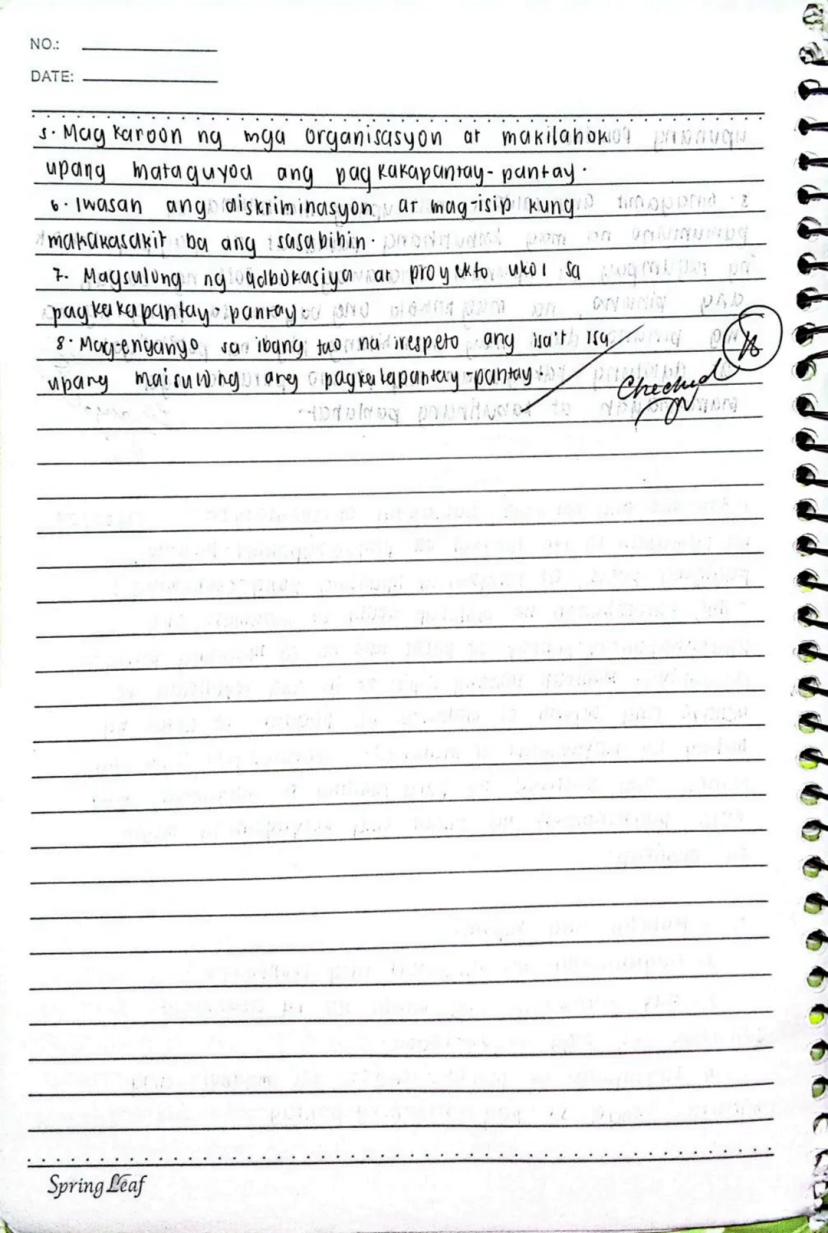 NO.:
DATE:
5. Magkaroon ng mga organisasyon at makilahok
upang mataguyod ang pagkakapantay-pantay.
6. Iwasan ang diskriminasyon at mag-isip kung
makakasakit ba ang sasabihin.
7. Magsulong ng adbokasiya at proyekto ukol sa
pagkakapantay-pantay.
8. Mag-enganyo sa ibang tao na irespeto ang isa't isa
upang maisulong ang pagkakapantay-pantay.
Checked
Spring Leaf